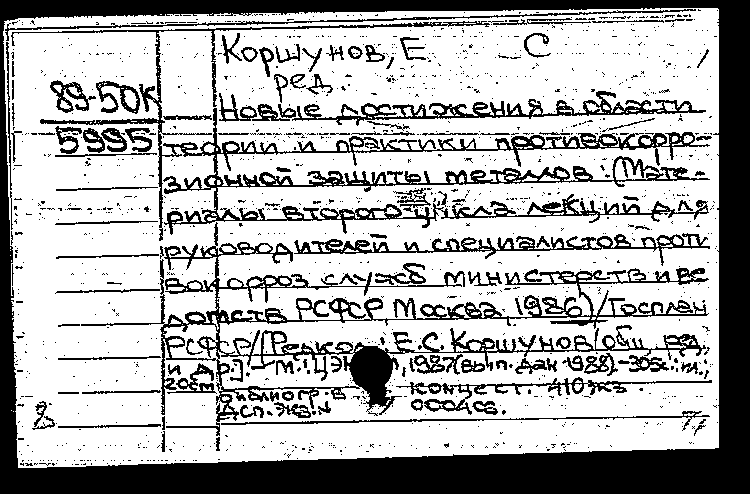 Коршунов, Е С
ред.
89-50К Новые достижения в области
5995 теории и практики противокорро-
зионной защиты металлов : (Мате-
риалы второго цикла лекций для
руководителей и специалистов проти
вокорроз служб министерств и ве
домств РСФСР, Москва, 1986) / Госплан
РСФСР / [Редкол.: Е.С. Коршунов (общ. ред.)
и др.]. - М.: 1987 (вып. дан 1988). - 305с.: ил.;
20см
Библиогр. в конце ст. 410 экз.
Дсп. Экз. № 000405.